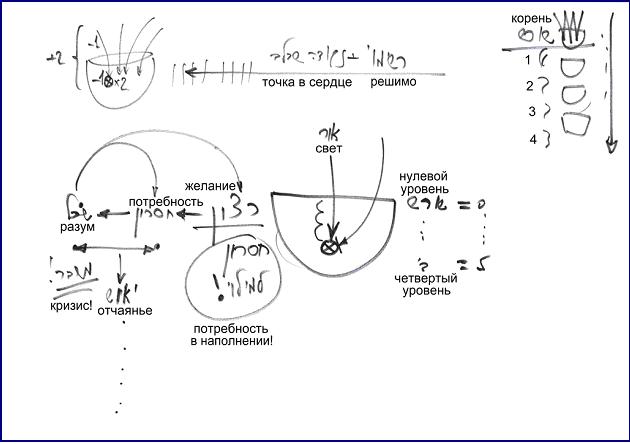 +2
-1
רשימו - נקודה שבלב
точка в сердце решимо
корень
שורש
1 א
2
3
4
אור
свет
желание
потребность
разум
שכל
חסרון
רצון
משבר!
кризис!
יאוש
отчаянье
חסרון
למילוי!
потребность
в наполнении!
нулевой
уровень
שורש = 0
четвертый
уровень